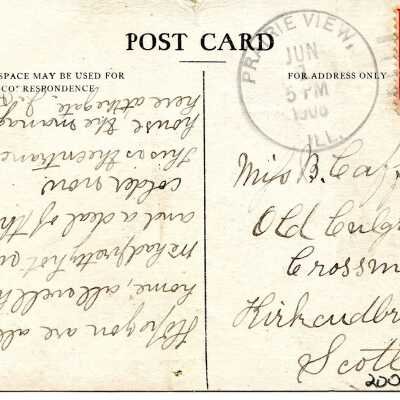 POST CARD
SPACE MAY BE USED FOR
CORRESPONDENCE
FOR ADDRESS ONLY
PRAIRIE VIEW,
JUN
5 PM
1908
ILL.
Miss B. Caf
Old Culg
Crossm
Kirkcudbr
Scotl
200
Hope you are all
home, all well
We had pretty hot
and a deal of th
colder now.
This is the entrance
house the manag
here at the gate.